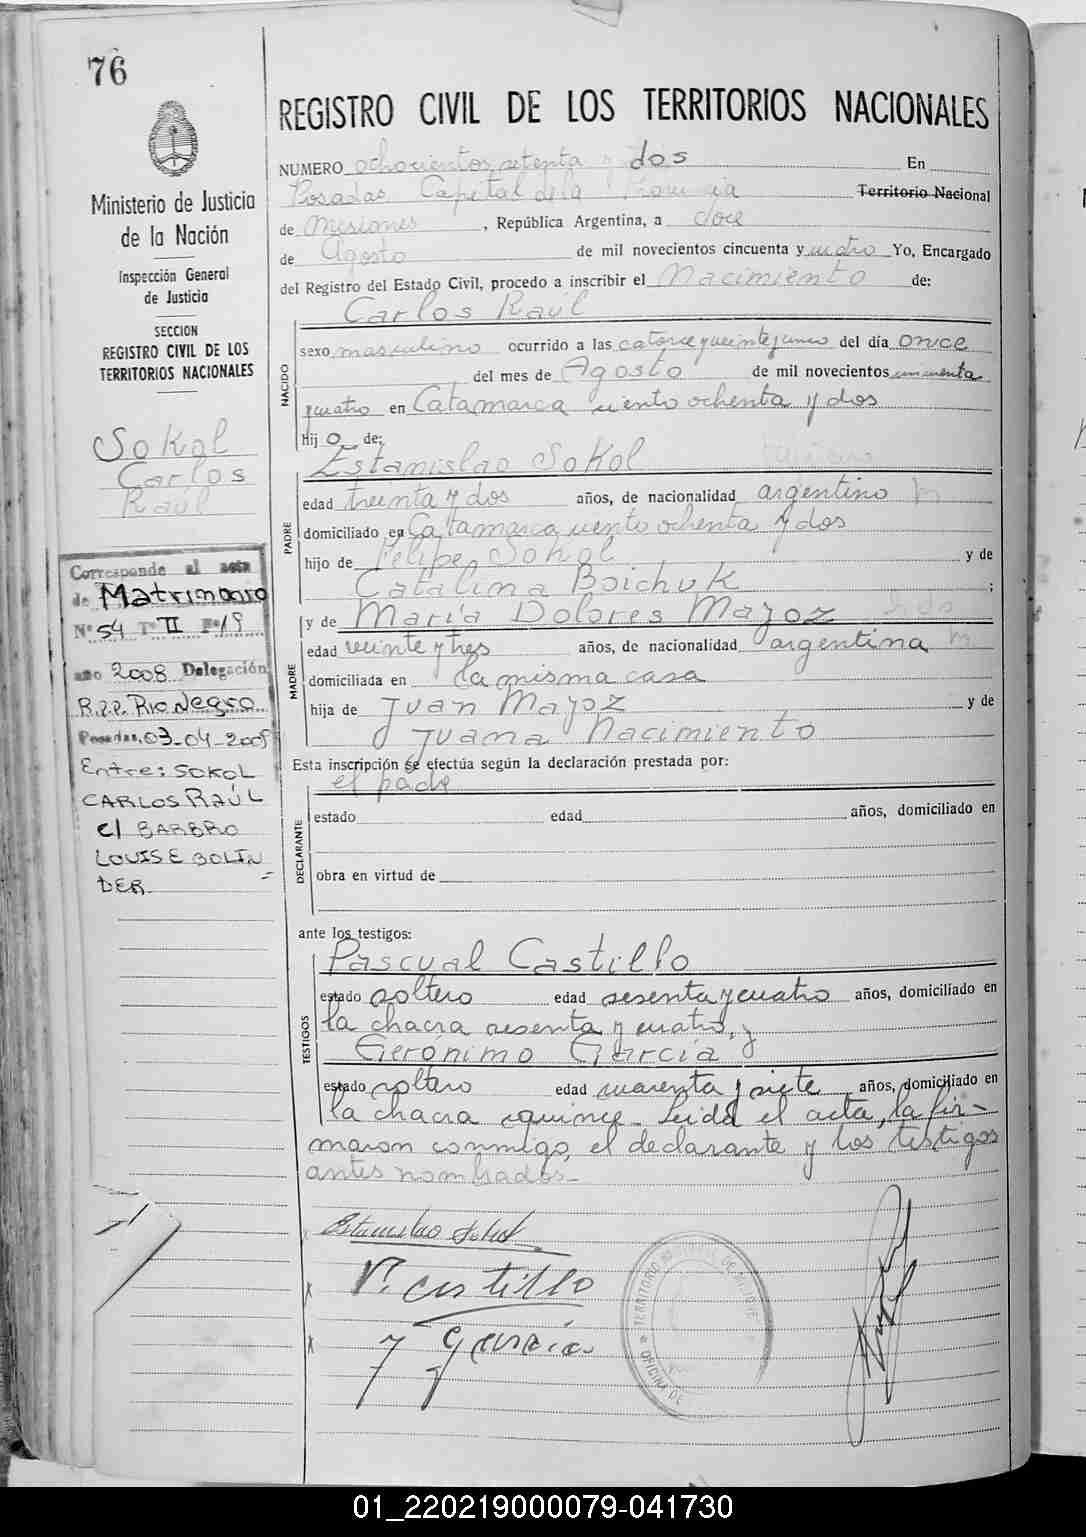 76
REGISTRO CIVIL DE LOS TERRITORIOS NACIONALES
NUMERO ochocientos setenta y dos En
Posadas Capital de la Provincia Territorio Nacional
de Misiones, República Argentina, a doce
de Agosto de mil novecientos cincuenta y cuatro Yo, Encargado
del Registro del Estado Civil, procedo a inscribir el Nacimiento de:
Carlos Raúl
NACIDO
sexo masculino ocurrido a las catorce y veinte y cinco del día once
del mes de Agosto de mil novecientos cincuenta
y cuatro en Catamarca ciento ochenta y dos
Hij o de:
Estanislao Sokol
PADRE
edad treinta y dos años, de nacionalidad argentino
domiciliado en Catamarca ciento ochenta y dos
hijo de Felipe Sokol y de
Catalina Boichuk ;
y de María Dolores Mayoz
MADRE
edad veinte y tres años, de nacionalidad argentina
domiciliada en la misma casa
hija de Juan Mayoz y de
Juana Nacimiento
Esta inscripción se efectúa según la declaración prestada por:
el padre
DECLARANTE
estado edad años, domiciliado en
obra en virtud de
ante los testigos:
Pascual Castillo
TESTIGOS
estado soltero edad sesenta y cuatro años, domiciliado en
la chacra sesenta y cuatro, y
Gerónimo García, y
estado soltero edad cuarenta y siete años, domiciliado en
la chacra quince. Leida el acta, la fir-
maron conmigo, el declarante y los testigos
antes nombrados.-
Estanislao Sokol
P. Castillo
J García
TERRITORIO
OFICINA DE
Ministerio de Justicia
de la Nación
Inspección General
de Justicia
SECCION
REGISTRO CIVIL DE LOS
TERRITORIOS NACIONALES
Sokol
Carlos
Raúl
Corresponde al acta
de Matrimonio
Nº 54 Tº II Fº 19
año 2008 Delegación
R.P.P. Rio Negro
Posadas, 03-04-2008
Entre: SOKOL
CARLOS RAÚL
c/ BARBRO
LOUISE BOLIN
DER
01_220219000079-041730